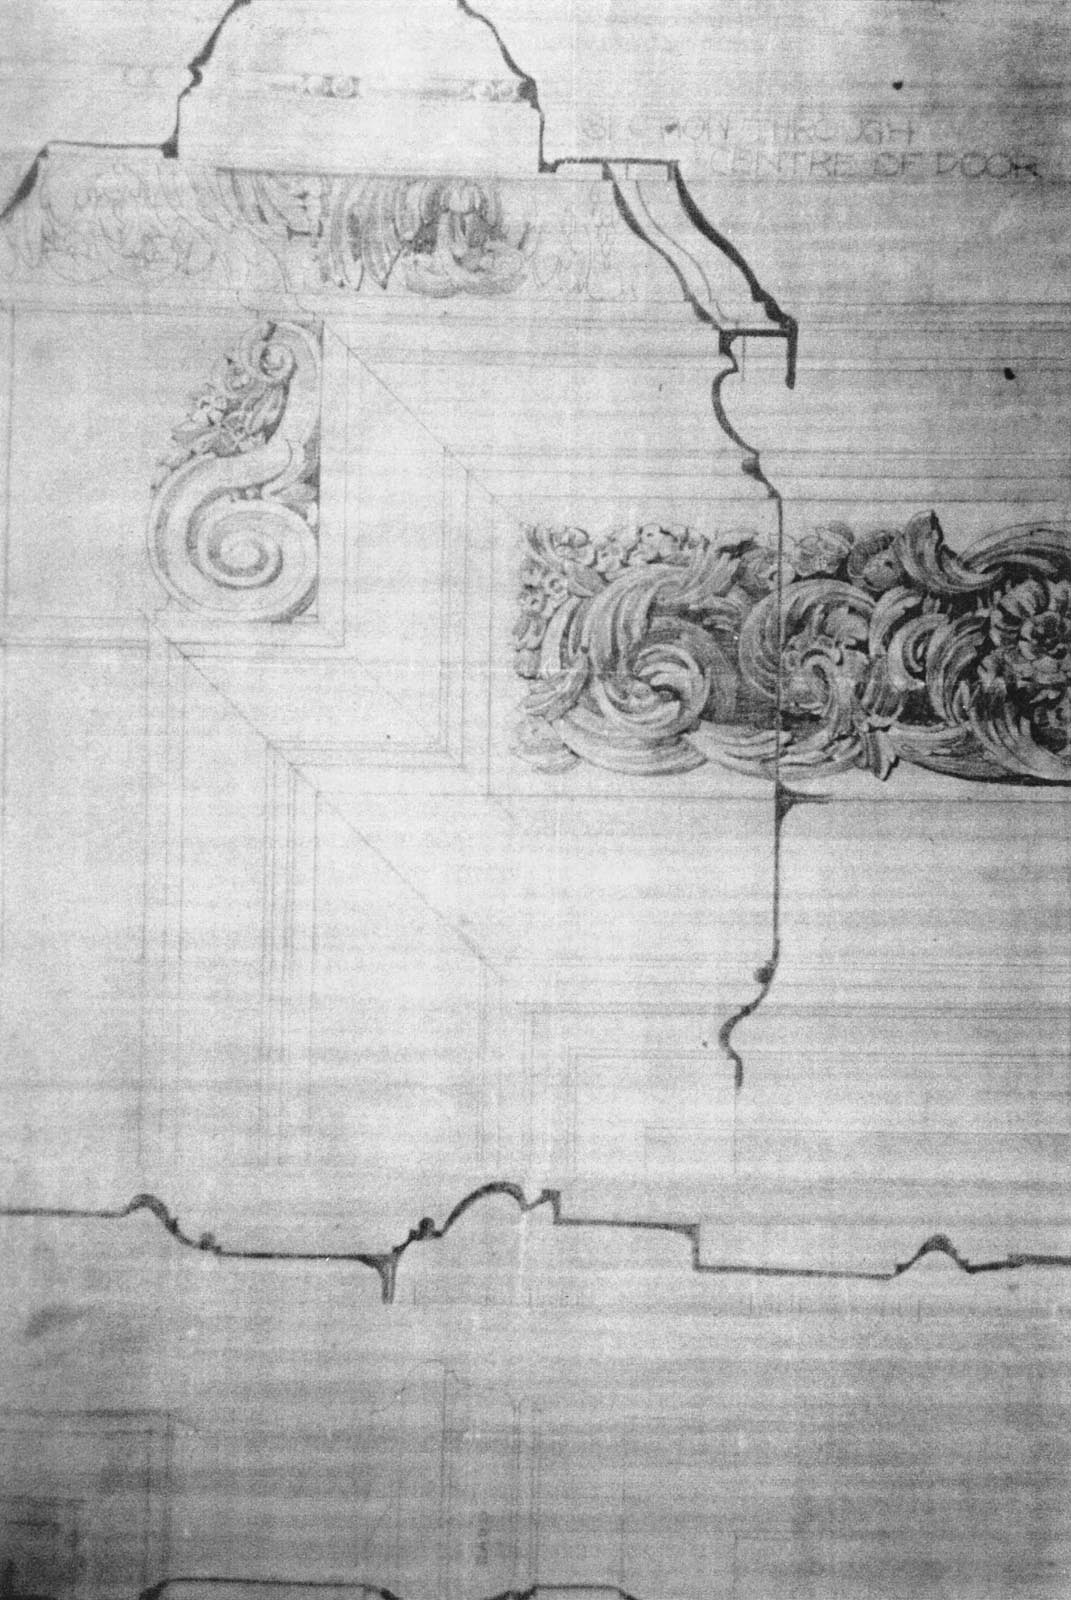 SECTION THROUGH
CENTRE OF DOOR